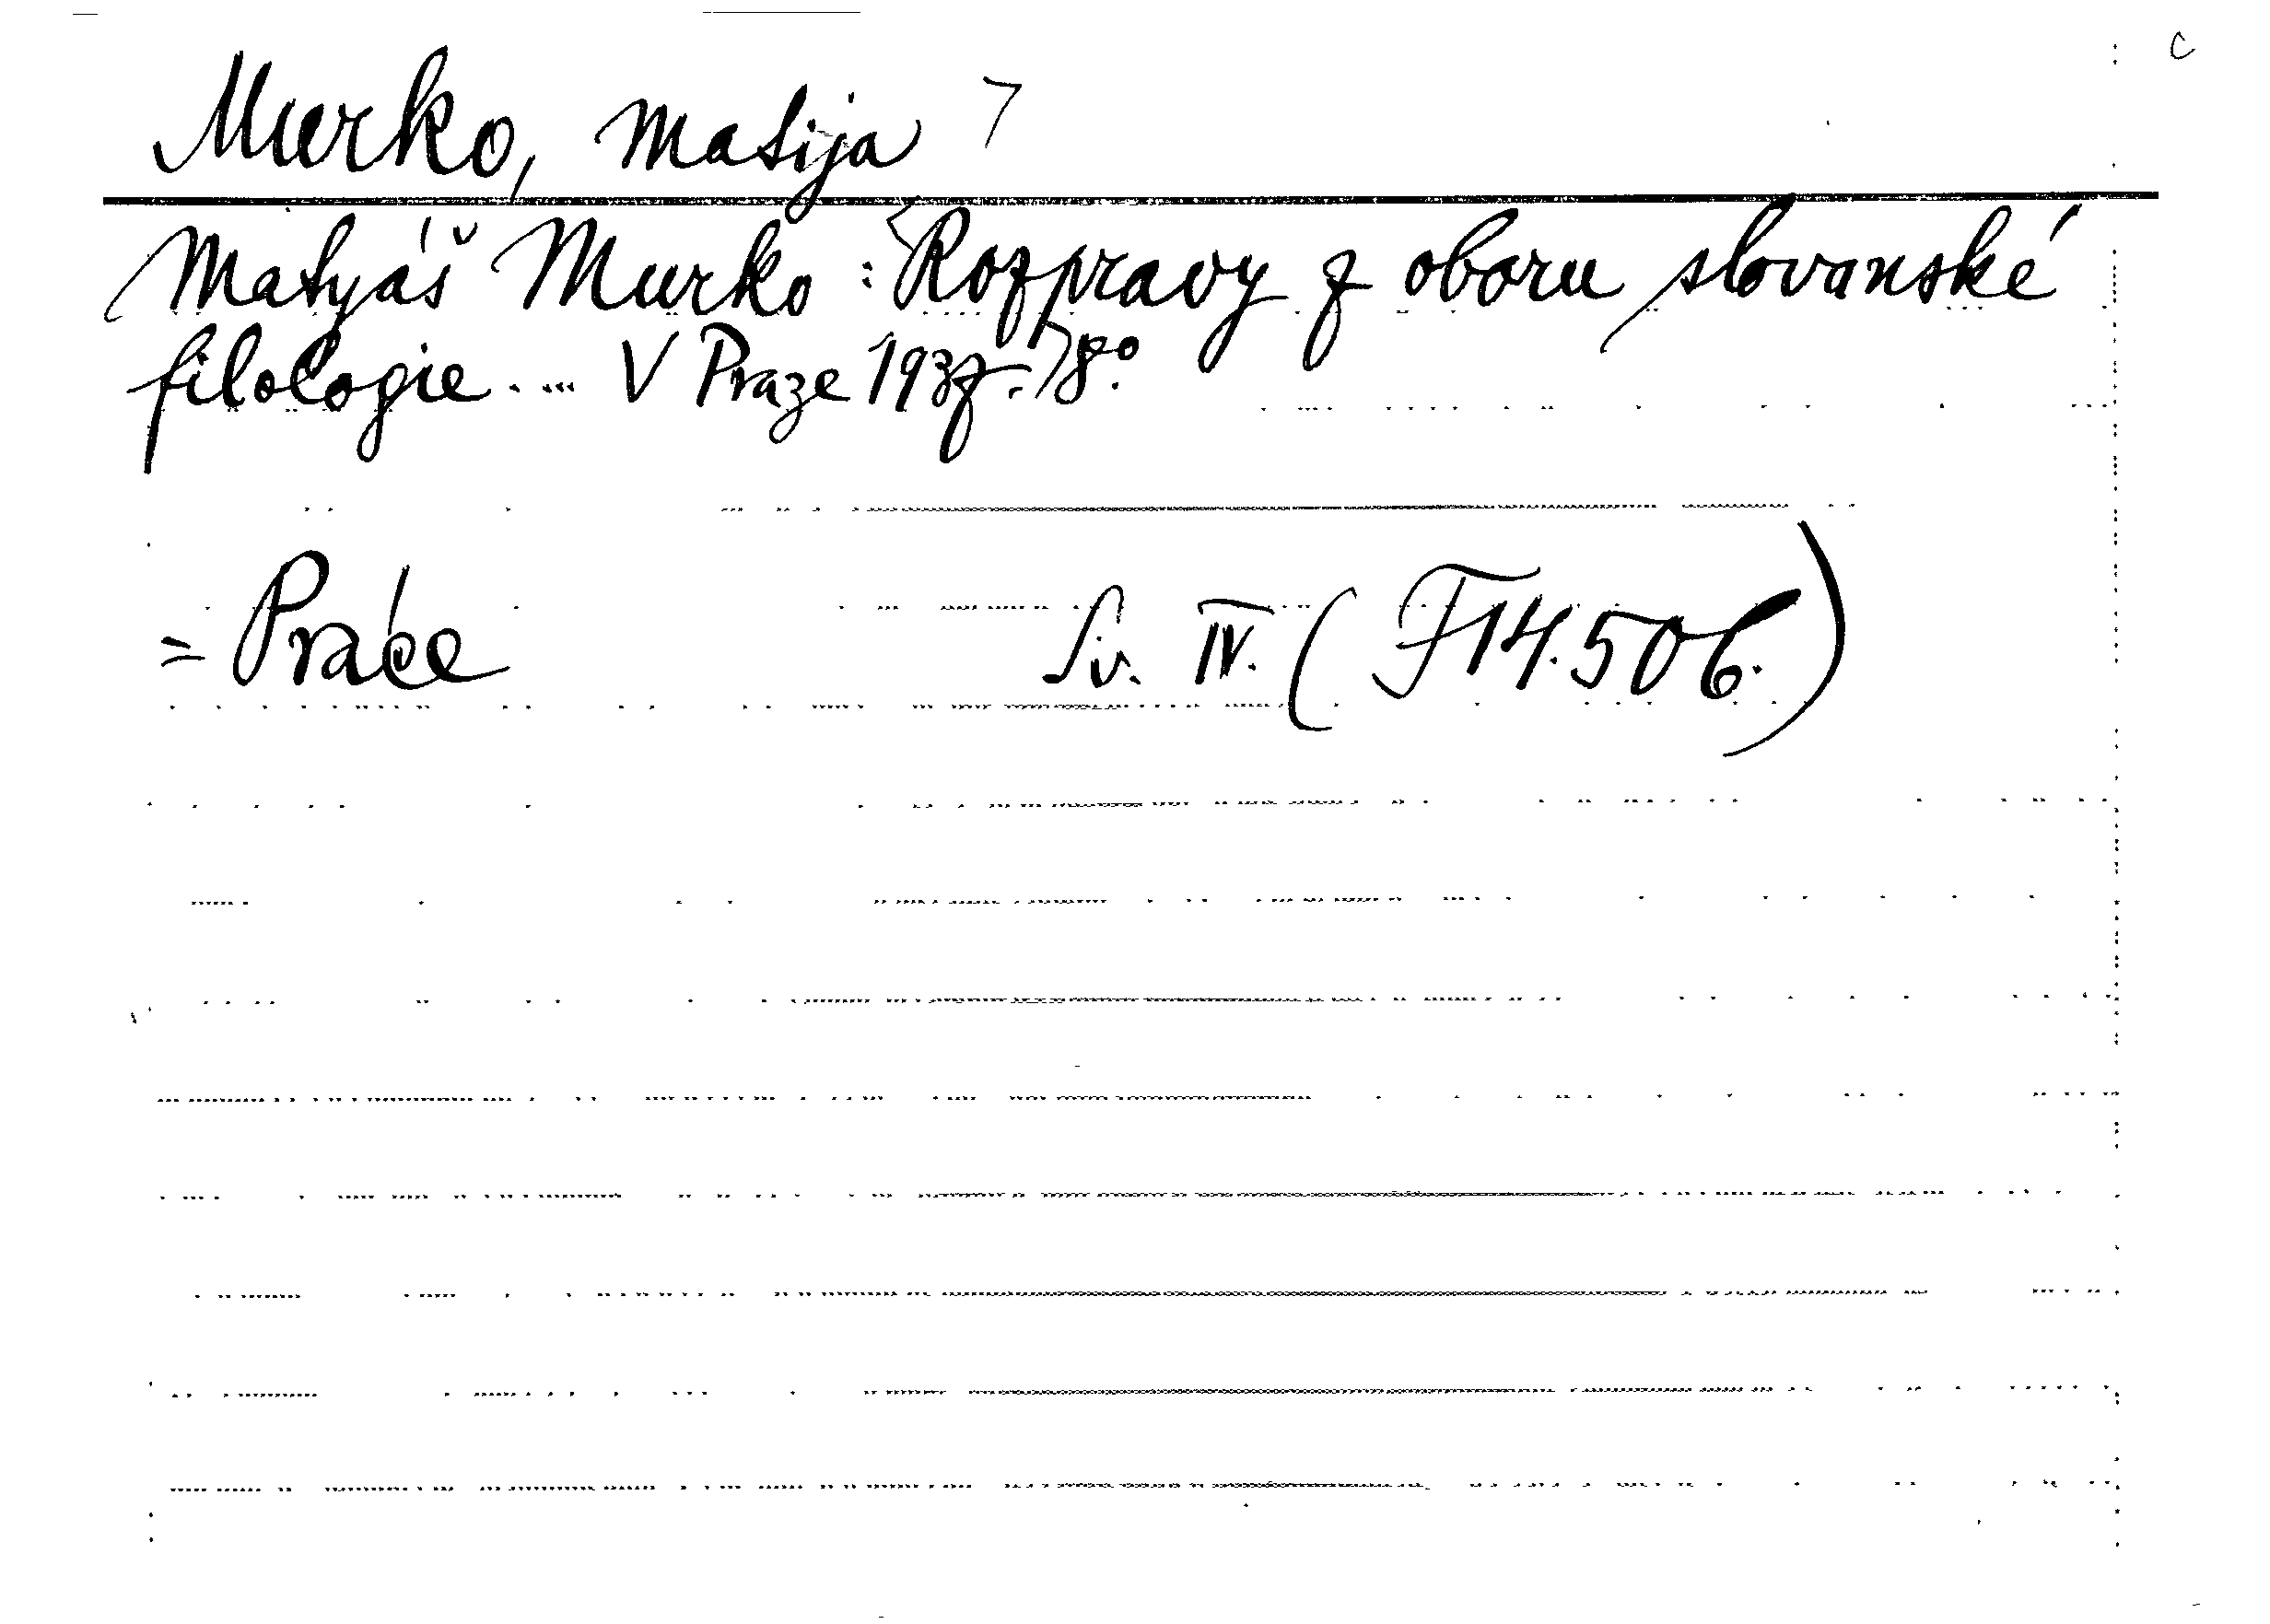 Murko, Matija 7
Matyáš Murko: Rozpravy z oboru slovanské
filologie. ... V Praze 1937. 8º.
= Práce Sv. IV. (F14.506.)